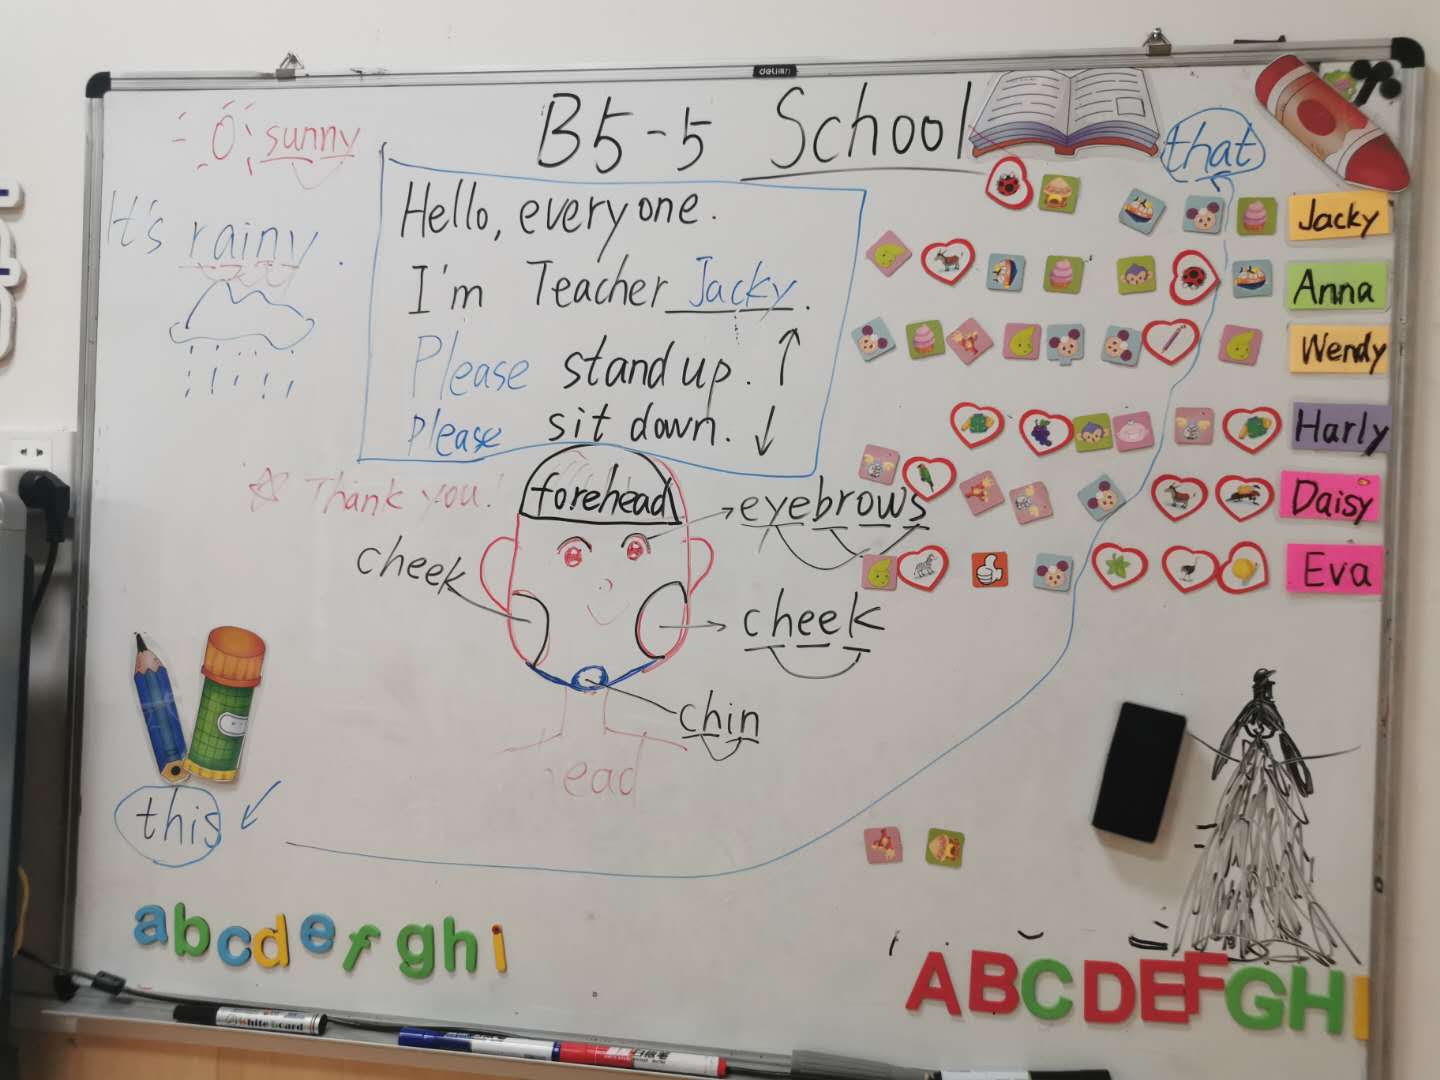 deli
B5-5 School
sunny
that
It's rainy.
Hello, everyone.
I'm Teacher Jacky.
Please stand up. ↑
Please sit down. ↓
Thank you!
Jacky
Anna
Wendy
Harly
Daisy
Eva
forehead
eyebrows
cheek
cheek
chin
ead
this
abcdefghi
ABCDEFGHI
Whiteboard